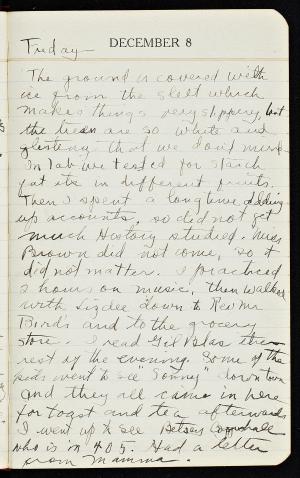 DECEMBER 8
Friday—
The ground is covered with
ice from the sleet which
makes things very slippery, but
the trees are so white and
glistening that we don't mind.
In lab we tested for starch
fat etc in different fruits.
Then I spent a long time adding
up accounts, so did not get
much History studied. Miss
Brown did not come, so it
did not matter. I practiced
2 hours on music, then walked
with down to Rev Mr
Bird's and to the grocery
store. I read Gil Blas the
rest of the evening. Some of the
girls went to see "Sonny" downtown
and they all came in here
for toast and tea afterwards
I went up to see Betsey
who is in 405. Had a letter
from Mamma.